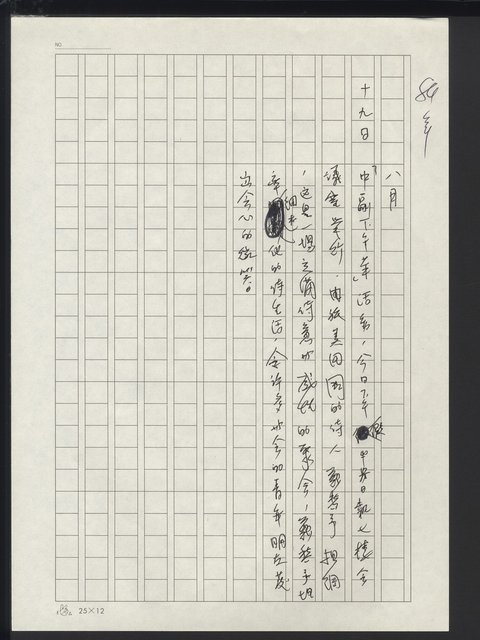 84年
八月
十九日 「中副下午茶」活動,今日下午假中央日報七樓會
議室舉行,由旅美回國的詩人鄭愁予擔綱
,這是一場充滿詩意與感性的聚會,鄭愁予坦
率細述他的詩生活,令許多與會的青年朋友發
出會心的微笑。
NO
25×12